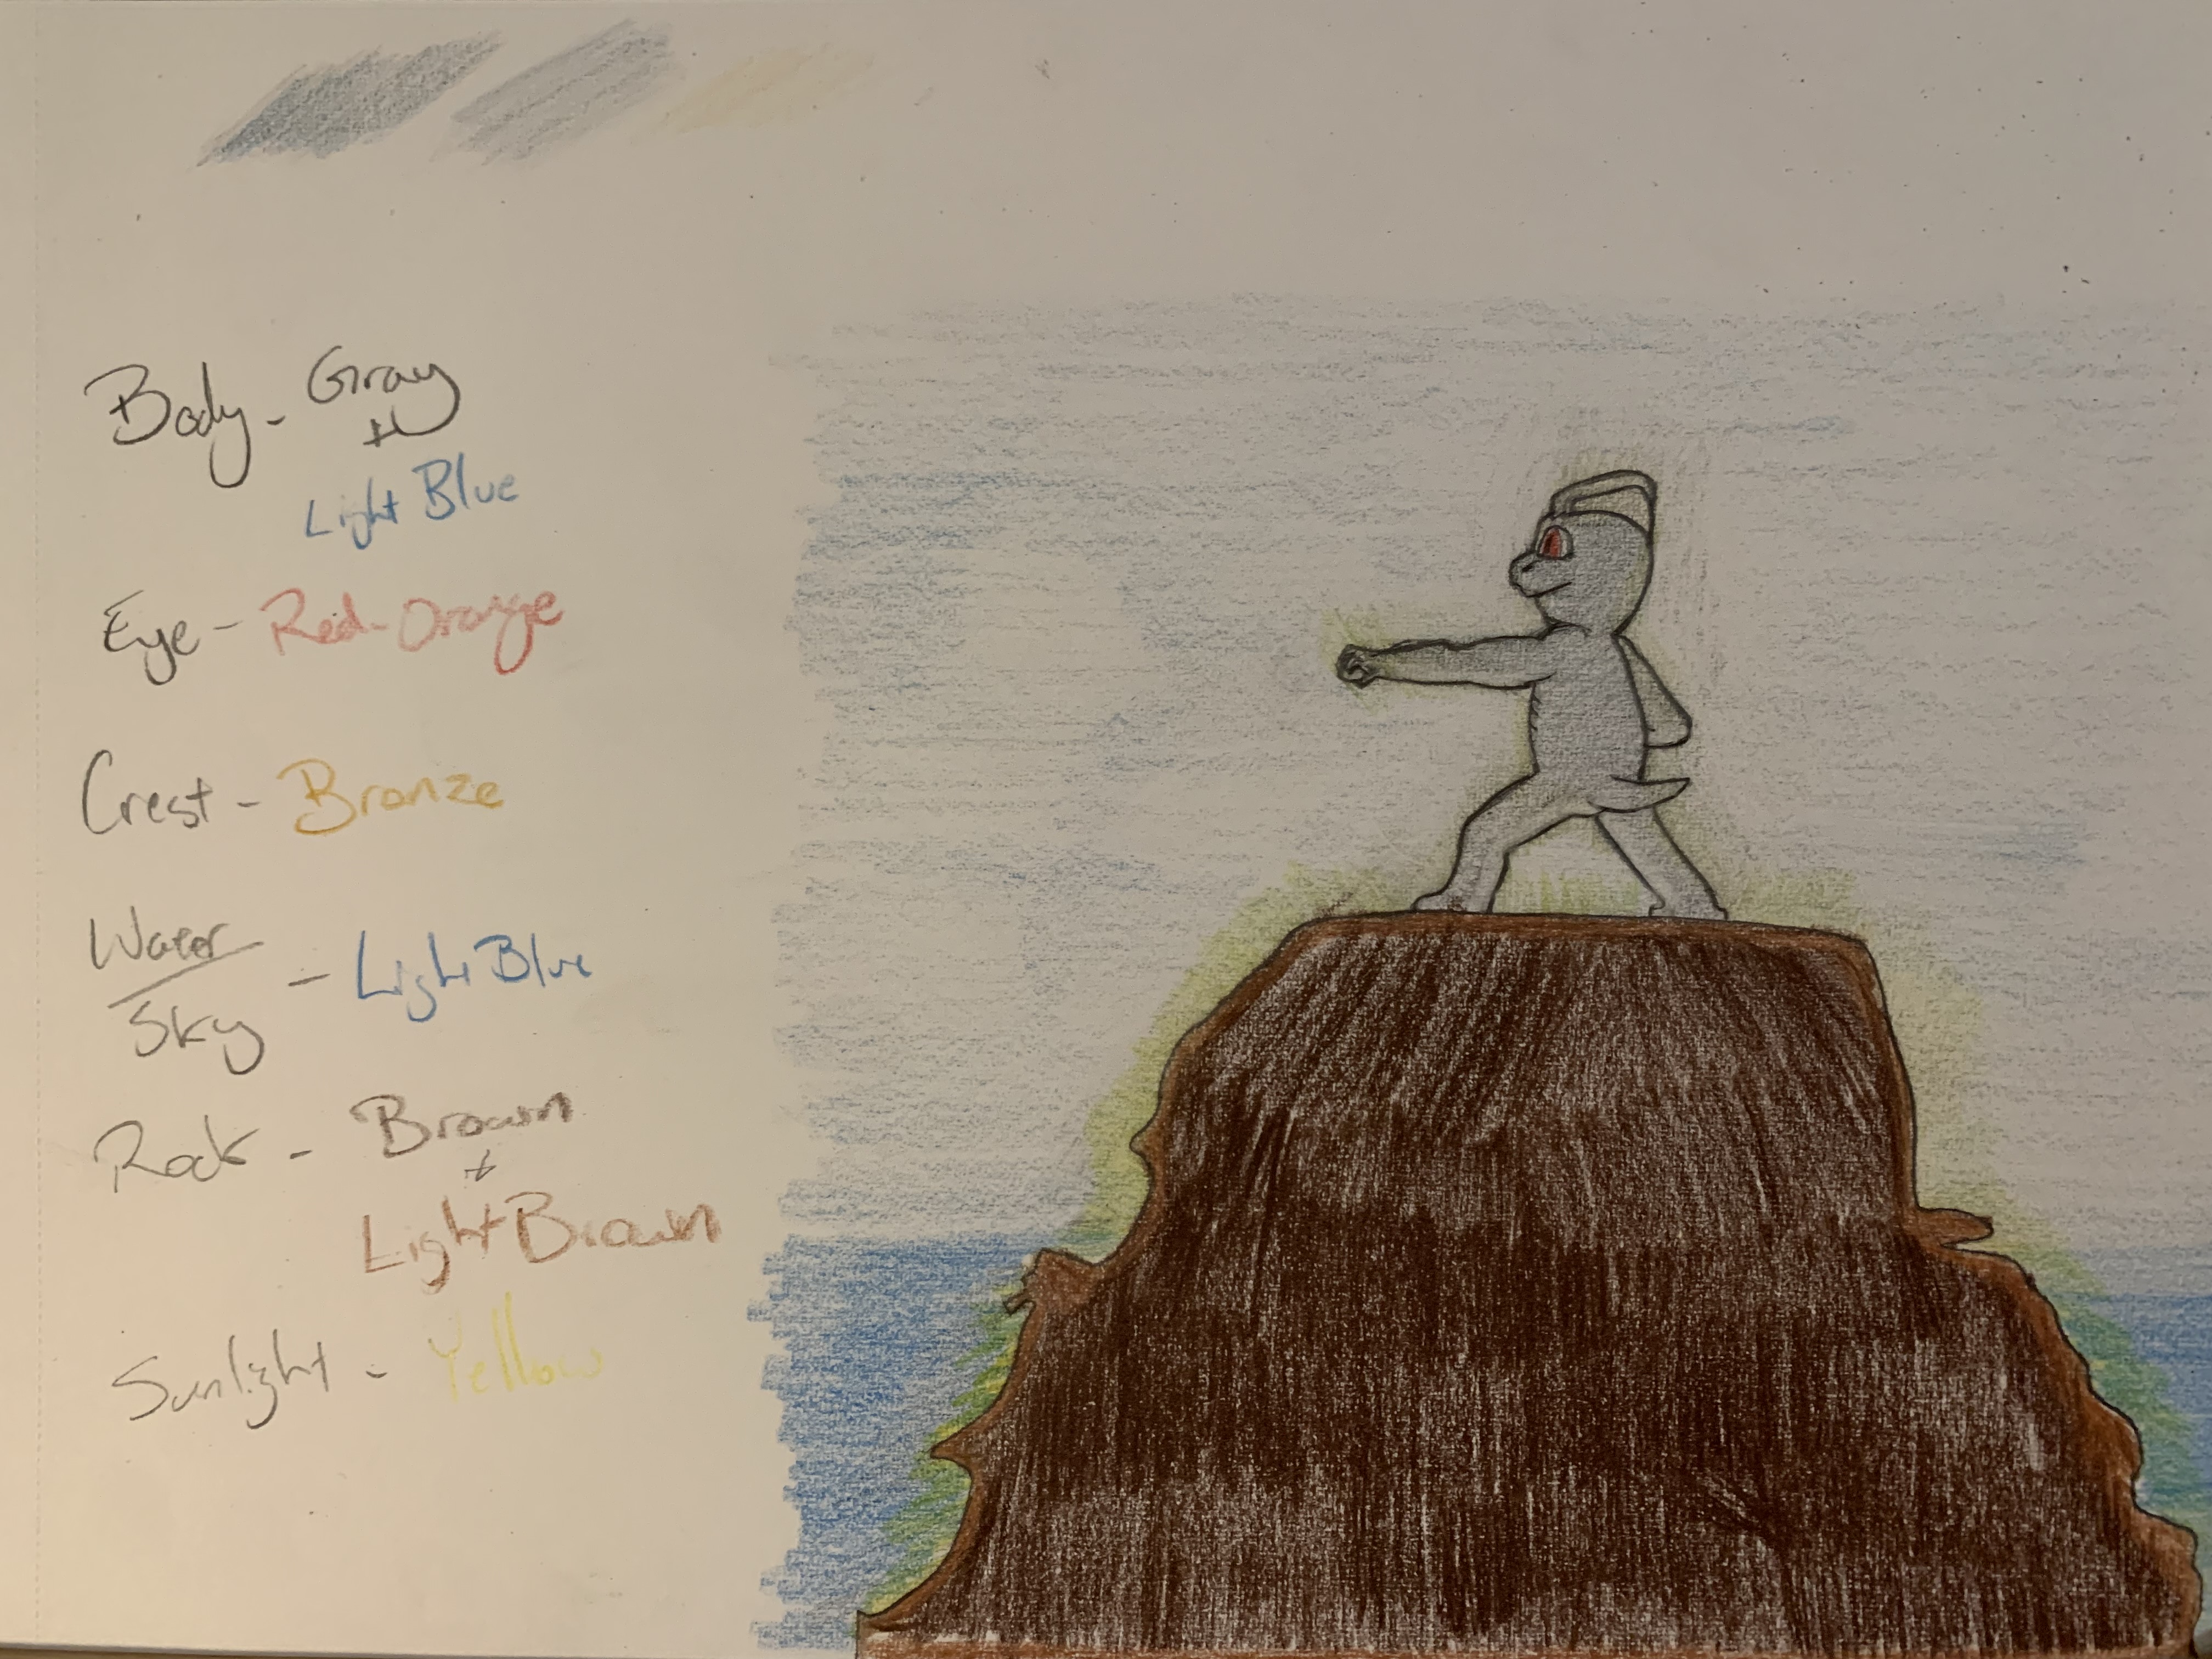 Body - Gray
+
Light Blue
Eye - Red-Orange
Crest - Bronze
Water
Sky - Light Blue
Rock - Brown
+
Light Brown
Sunlight - Yellow